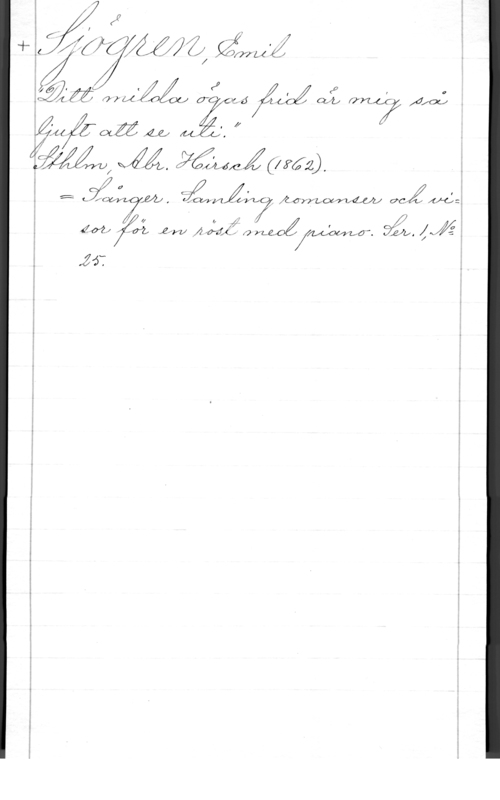 + Sjögren, Emil
"Ditt milda ögas frid är mig så
ljuft att se uti."
Sthlm, Abr. Hirsch (1862).
= Sånger. Samling romanser och vi=
sor för en röst med piano. Ser. 1, Nº
25.